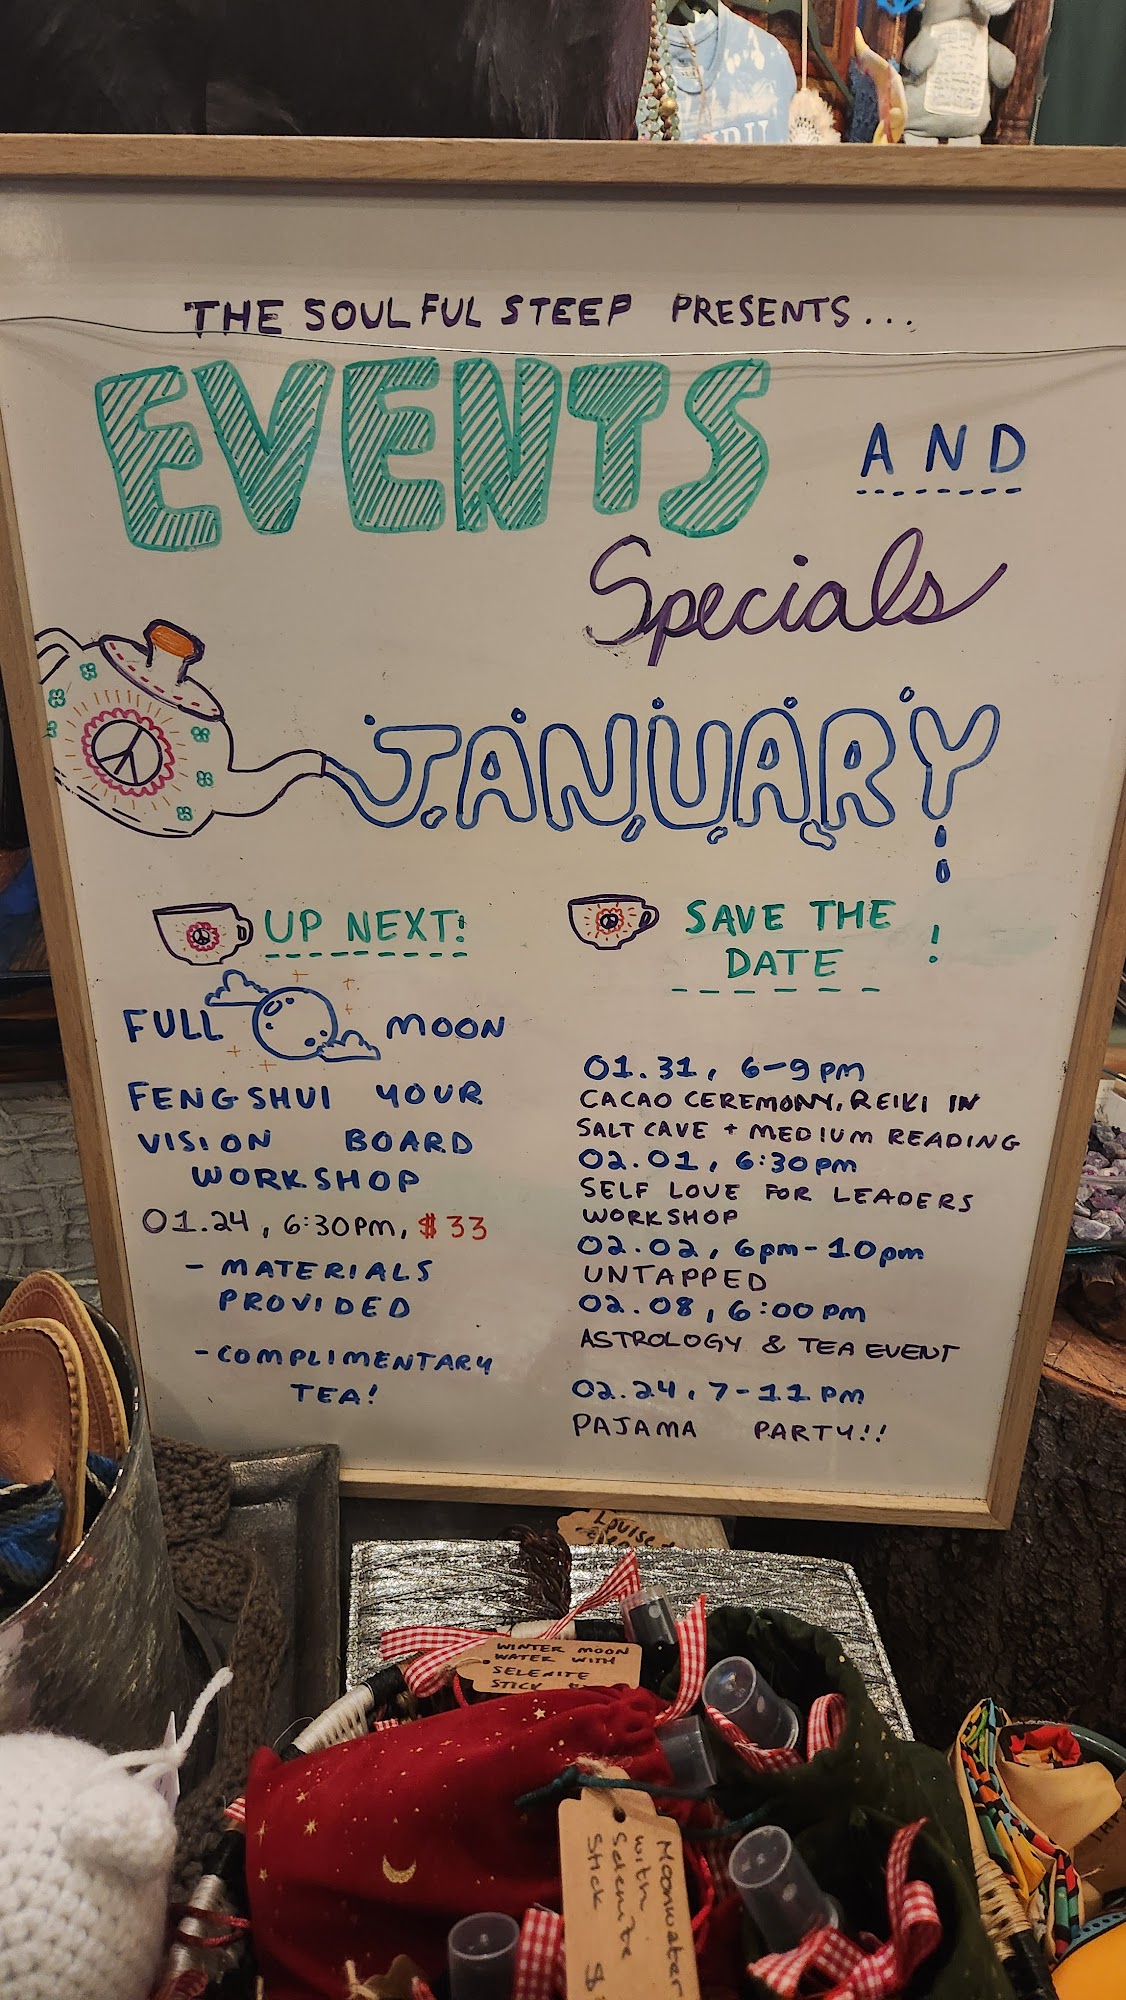 THE SOULFUL STEEP PRESENTS...
EVENTS AND
Specials
JANUARY
UP NEXT!
FULL MOON
FENGSHUI YOUR
VISION BOARD
WORKSHOP
01.24, 6:30PM, $33
- MATERIALS
PROVIDED
- COMPLIMENTARY
TEA!
SAVE THE
DATE !
01.31, 6-9pm
CACAO CEREMONY, REIKI IN
SALT CAVE + MEDIUM READING
02.01, 6:30pm
SELF LOVE FOR LEADERS
WORKSHOP
02.02, 6pm-10pm
UNTAPPED
02.08, 6:00pm
ASTROLOGY & TEA EVENT
02.24, 7-11pm
PAJAMA PARTY!!
Louise
WINTER MOON
WATER WITH
SELENITE
STICK
Moonwater
with
Selenite
Stick $